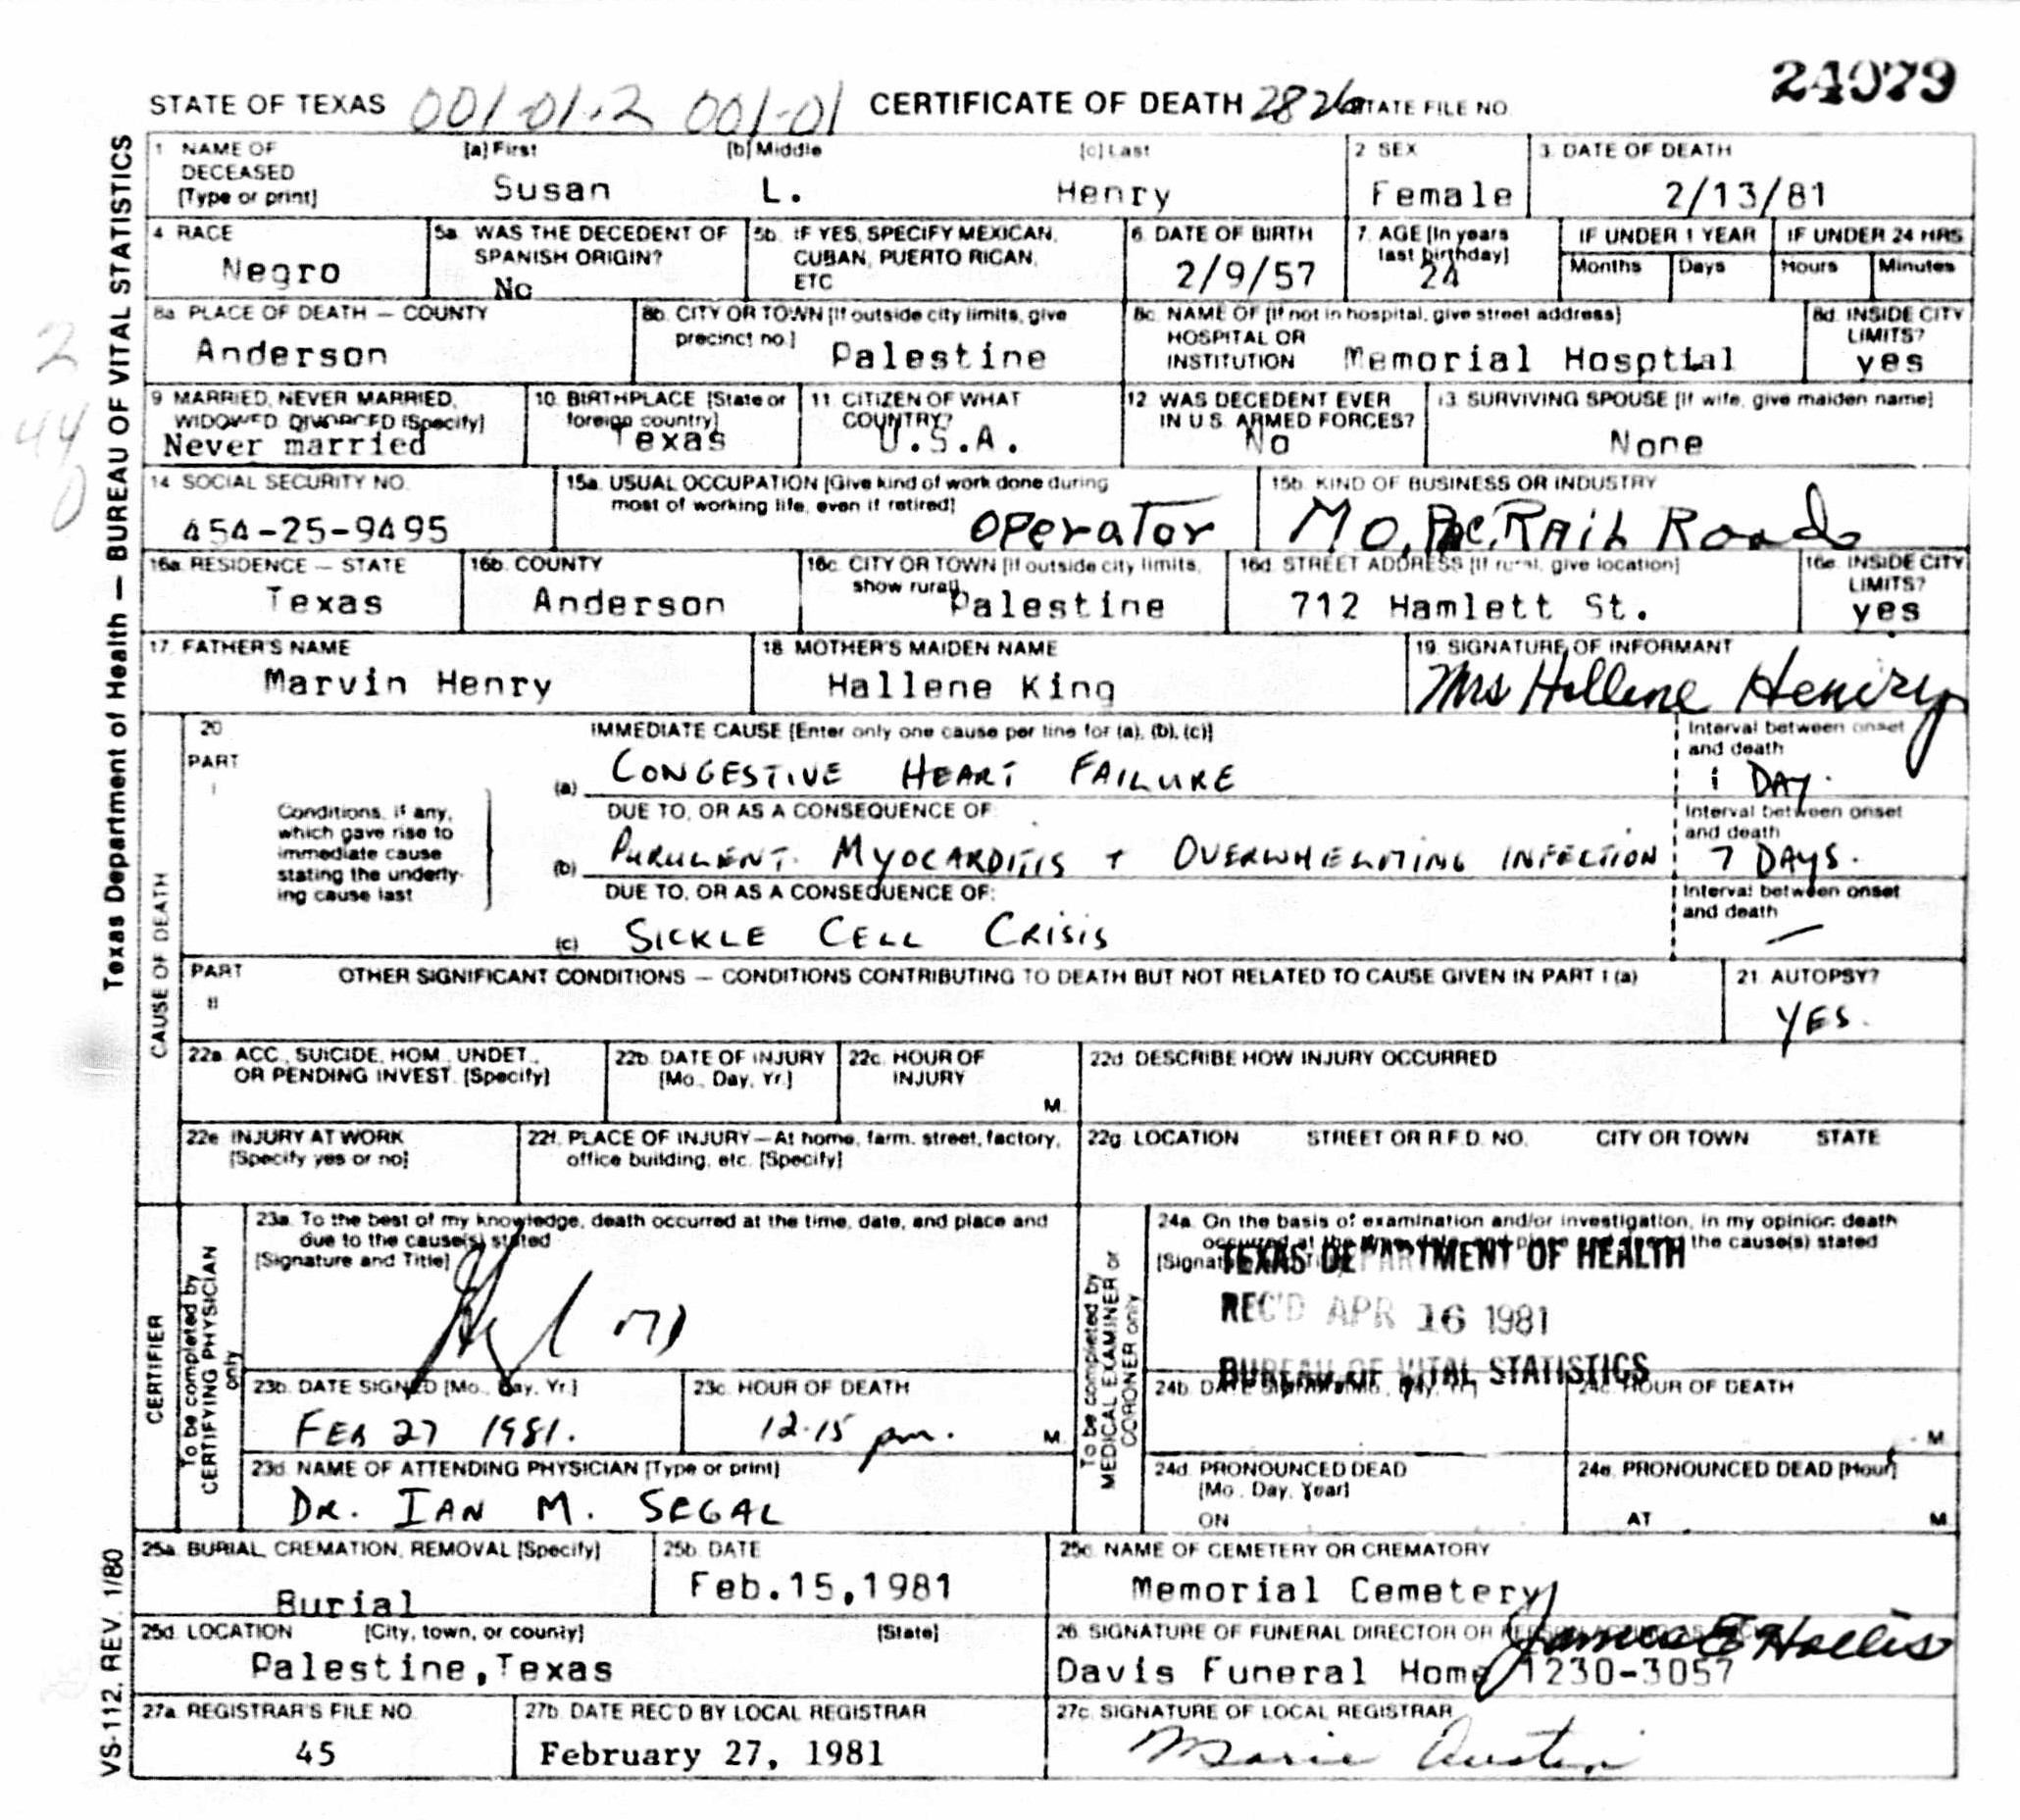 24979
STATE OF TEXAS 001-01-2 001-01 CERTIFICATE OF DEATH 2826 STATE FILE NO.
Texas Department of Health — BUREAU OF VITAL STATISTICS
1 NAME OF DECEASED [Type or print] [a] First [b] Middle [c] Last
Susan L. Henry
2 SEX
Female
3. DATE OF DEATH
2/13/81
4 RACE
Negro
5a. WAS THE DECEDENT OF SPANISH ORIGIN?
No
5b. IF YES, SPECIFY MEXICAN, CUBAN, PUERTO RICAN, ETC
6. DATE OF BIRTH
2/9/57
7. AGE [In years last birthday]
24
IF UNDER 1 YEAR
Months Days
IF UNDER 24 HRS
Hours Minutes
8a. PLACE OF DEATH — COUNTY
Anderson
8b. CITY OR TOWN [If outside city limits, give precinct no.]
Palestine
8c. NAME OF [If not in hospital, give street address] HOSPITAL OR INSTITUTION
Memorial Hosptial
8d. INSIDE CITY LIMITS?
yes
9 MARRIED, NEVER MARRIED, WIDOWED, DIVORCED [Specify]
Never married
10. BIRTHPLACE [State or foreign country]
Texas
11. CITIZEN OF WHAT COUNTRY?
U.S.A.
12. WAS DECEDENT EVER IN U.S. ARMED FORCES?
No
13. SURVIVING SPOUSE [If wife, give maiden name]
None
2
44
0
14 SOCIAL SECURITY NO.
454-25-9495
15a. USUAL OCCUPATION [Give kind of work done during most of working life, even if retired]
OPERATOR
15b. KIND OF BUSINESS OR INDUSTRY
MO. PAC. RAIL Roads
16a. RESIDENCE — STATE
Texas
16b. COUNTY
Anderson
16c. CITY OR TOWN [If outside city limits, show rural]
Palestine
16d. STREET ADDRESS [If rural, give location]
712 Hamlett St.
16e. INSIDE CITY LIMITS?
yes
17. FATHER'S NAME
Marvin Henry
18. MOTHER'S MAIDEN NAME
Hallene King
19. SIGNATURE OF INFORMANT
Mrs Hellene Henry
CAUSE OF DEATH
20
PART I
IMMEDIATE CAUSE [Enter only one cause per line for (a), (b), (c)]
(a) CONGESTIVE HEART FAILURE
Interval between onset and death
1 DAY.
Conditions, if any, which gave rise to immediate cause stating the underlying cause last
DUE TO, OR AS A CONSEQUENCE OF:
(b) PURULENT MYOCARDITIS + OVERWHELMING INFECTION
Interval between onset and death
7 DAYS.
DUE TO, OR AS A CONSEQUENCE OF:
(c) SICKLE CELL CRISIS
Interval between onset and death
—
PART II
OTHER SIGNIFICANT CONDITIONS — CONDITIONS CONTRIBUTING TO DEATH BUT NOT RELATED TO CAUSE GIVEN IN PART I (a)
21. AUTOPSY?
YES.
22a. ACC., SUICIDE, HOM., UNDET., OR PENDING INVEST. [Specify]
22b. DATE OF INJURY [Mo., Day, Yr.]
22c. HOUR OF INJURY
M.
22d. DESCRIBE HOW INJURY OCCURRED
22e. INJURY AT WORK [Specify yes or no]
22f. PLACE OF INJURY—At home, farm, street, factory, office building, etc. [Specify]
22g. LOCATION STREET OR R.F.D. NO. CITY OR TOWN STATE
CERTIFIER
To be completed by CERTIFYING PHYSICIAN only
23a. To the best of my knowledge, death occurred at the time, date, and place and due to the cause(s) stated
[Signature and Title]
MD
23b. DATE SIGNED [Mo., Day, Yr.]
FEB 27 1981.
23c. HOUR OF DEATH
12.15 pm. M.
23d. NAME OF ATTENDING PHYSICIAN [Type or print]
DR. IAN M. SEGAL
To be completed by MEDICAL EXAMINER or CORONER only
24a. On the basis of examination and/or investigation, in my opinion death occurred at the time, date, and place and due to the cause(s) stated
[Signature and Title]
TEXAS DEPARTMENT OF HEALTH
REC'D APR 16 1981
BUREAU OF VITAL STATISTICS
24b. DATE SIGNED [Mo., Day, Yr.]
24c. HOUR OF DEATH
M.
24d. PRONOUNCED DEAD [Mo., Day, Year]
ON
24e. PRONOUNCED DEAD [Hour]
AT M.
25a. BURIAL, CREMATION, REMOVAL [Specify]
Burial
25b. DATE
Feb.15,1981
25c. NAME OF CEMETERY OR CREMATORY
Memorial Cemetery
25d. LOCATION [City, town, or county] [State]
Palestine,Texas
26. SIGNATURE OF FUNERAL DIRECTOR OR
James E Hollis
Davis Funeral Home 1230-3057
27a. REGISTRAR'S FILE NO.
45
27b. DATE REC'D BY LOCAL REGISTRAR
February 27, 1981
27c. SIGNATURE OF LOCAL REGISTRAR
Marie Austin
VS-112, REV. 1/80